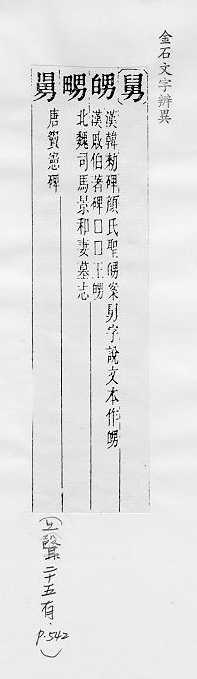 金石文字辨異
舅
漢韓勅碑顏氏聖舅案舅字說文本作舅
漢戚伯著碑□□王舅
北魏司馬景和妻墓志
唐碑
(上聲二十五有.p.542)